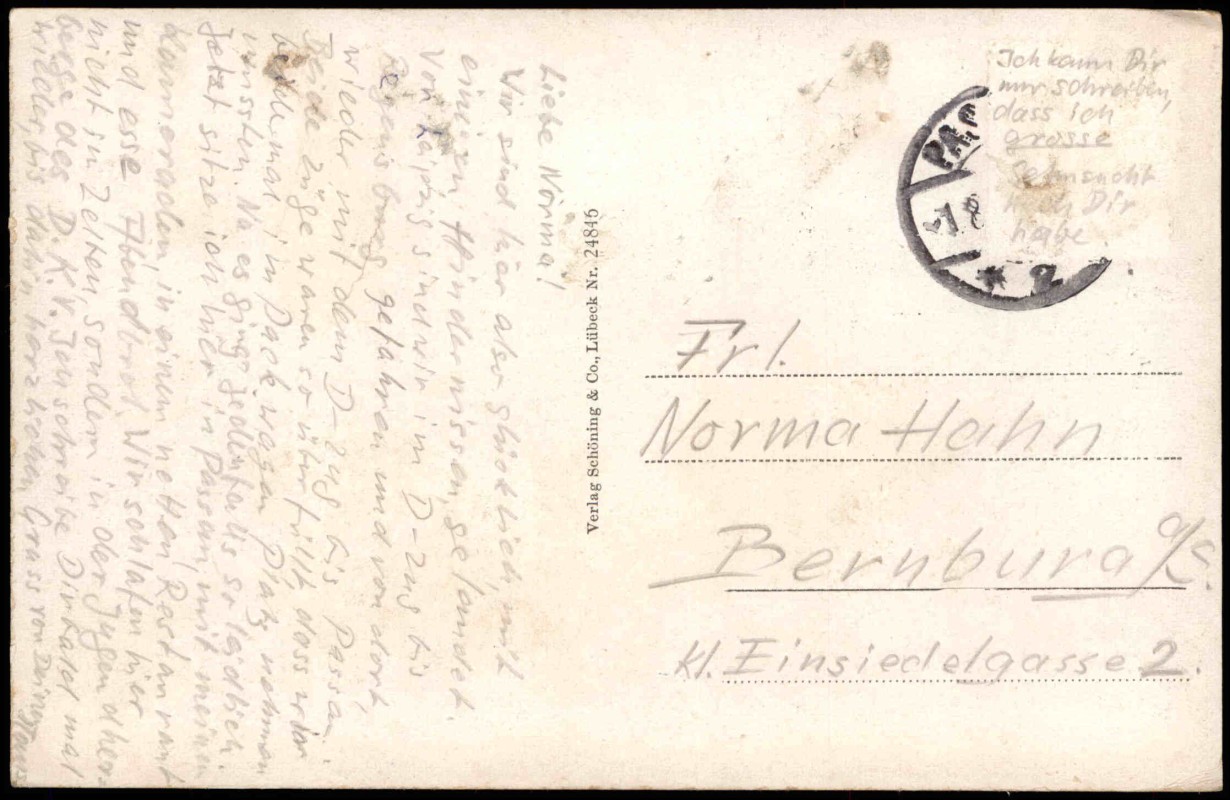 Liebe Norma!
Wir sind hier also glücklich, mit
einigen Hindernissen, gelandet.
Von Leipzig sind wir im D-Zug bis
Regensburg gefahren und von dort
wieder mit dem D-248 bis Passau.
Beide Züge waren so überfüllt, dass wir
beide mal in Packwagen Platz nehmen
mussten. Na es ging jedenfalls so leidlich.
Jetzt sitze ich hier in Passau, mit meinen
Kameraden in einem netten Restaurant
und esse Abendbrot. Wir schlafen hier
nicht in Zelten, sondern in der Jugendher=
berge des D.K.V. Ich schreibe Dir bald mal
wieder, bis dahin herzlichen Gruss von Deinem
Verlag Schöning & Co., Lübeck Nr. 24845
Ich kann Dir
nur schreiben,
dass ich
grosse
Sehnsucht
nach Dir
habe
PAS
-1.8
* 2
Frl.
Norma Hahn
Bernburg a/S.
Kl. Einsiedelgasse 2.